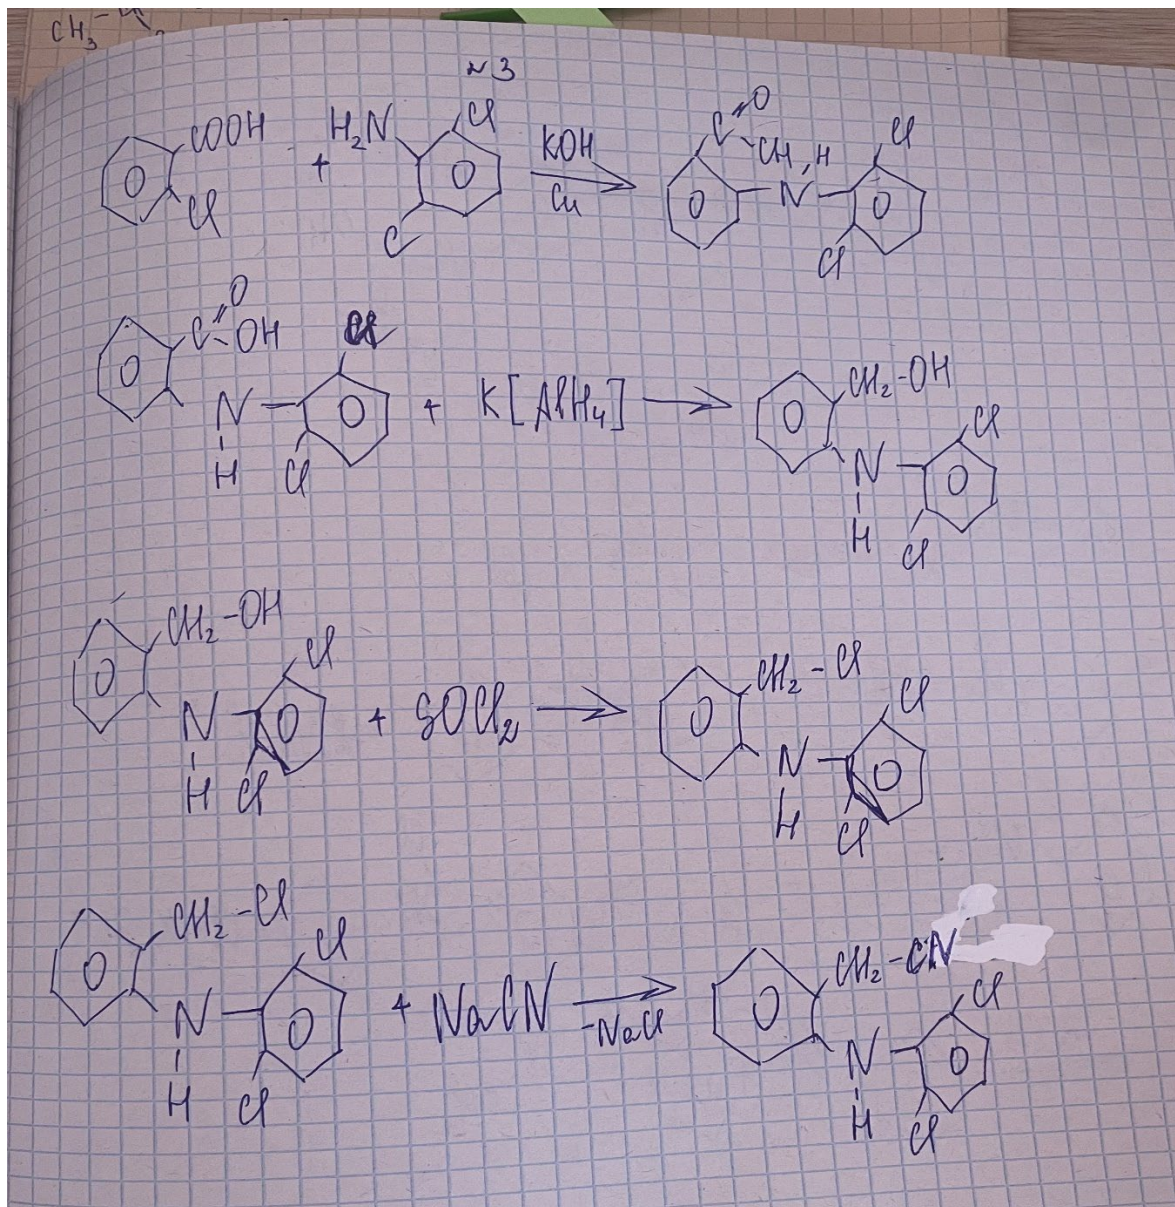 CH₃
N3
COOH Cl + H₂N Cl C KOH Cu C=O CH H N Cl Cl
C=O OH N H Cl Cl + K[AlH₄] CH₂-OH N H Cl Cl
CH₂-OH N H Cl Cl + SOCl₂ CH₂-Cl N H Cl Cl
CH₂-Cl N H Cl Cl + NaCN -NaCl CH₂-CN N H Cl Cl